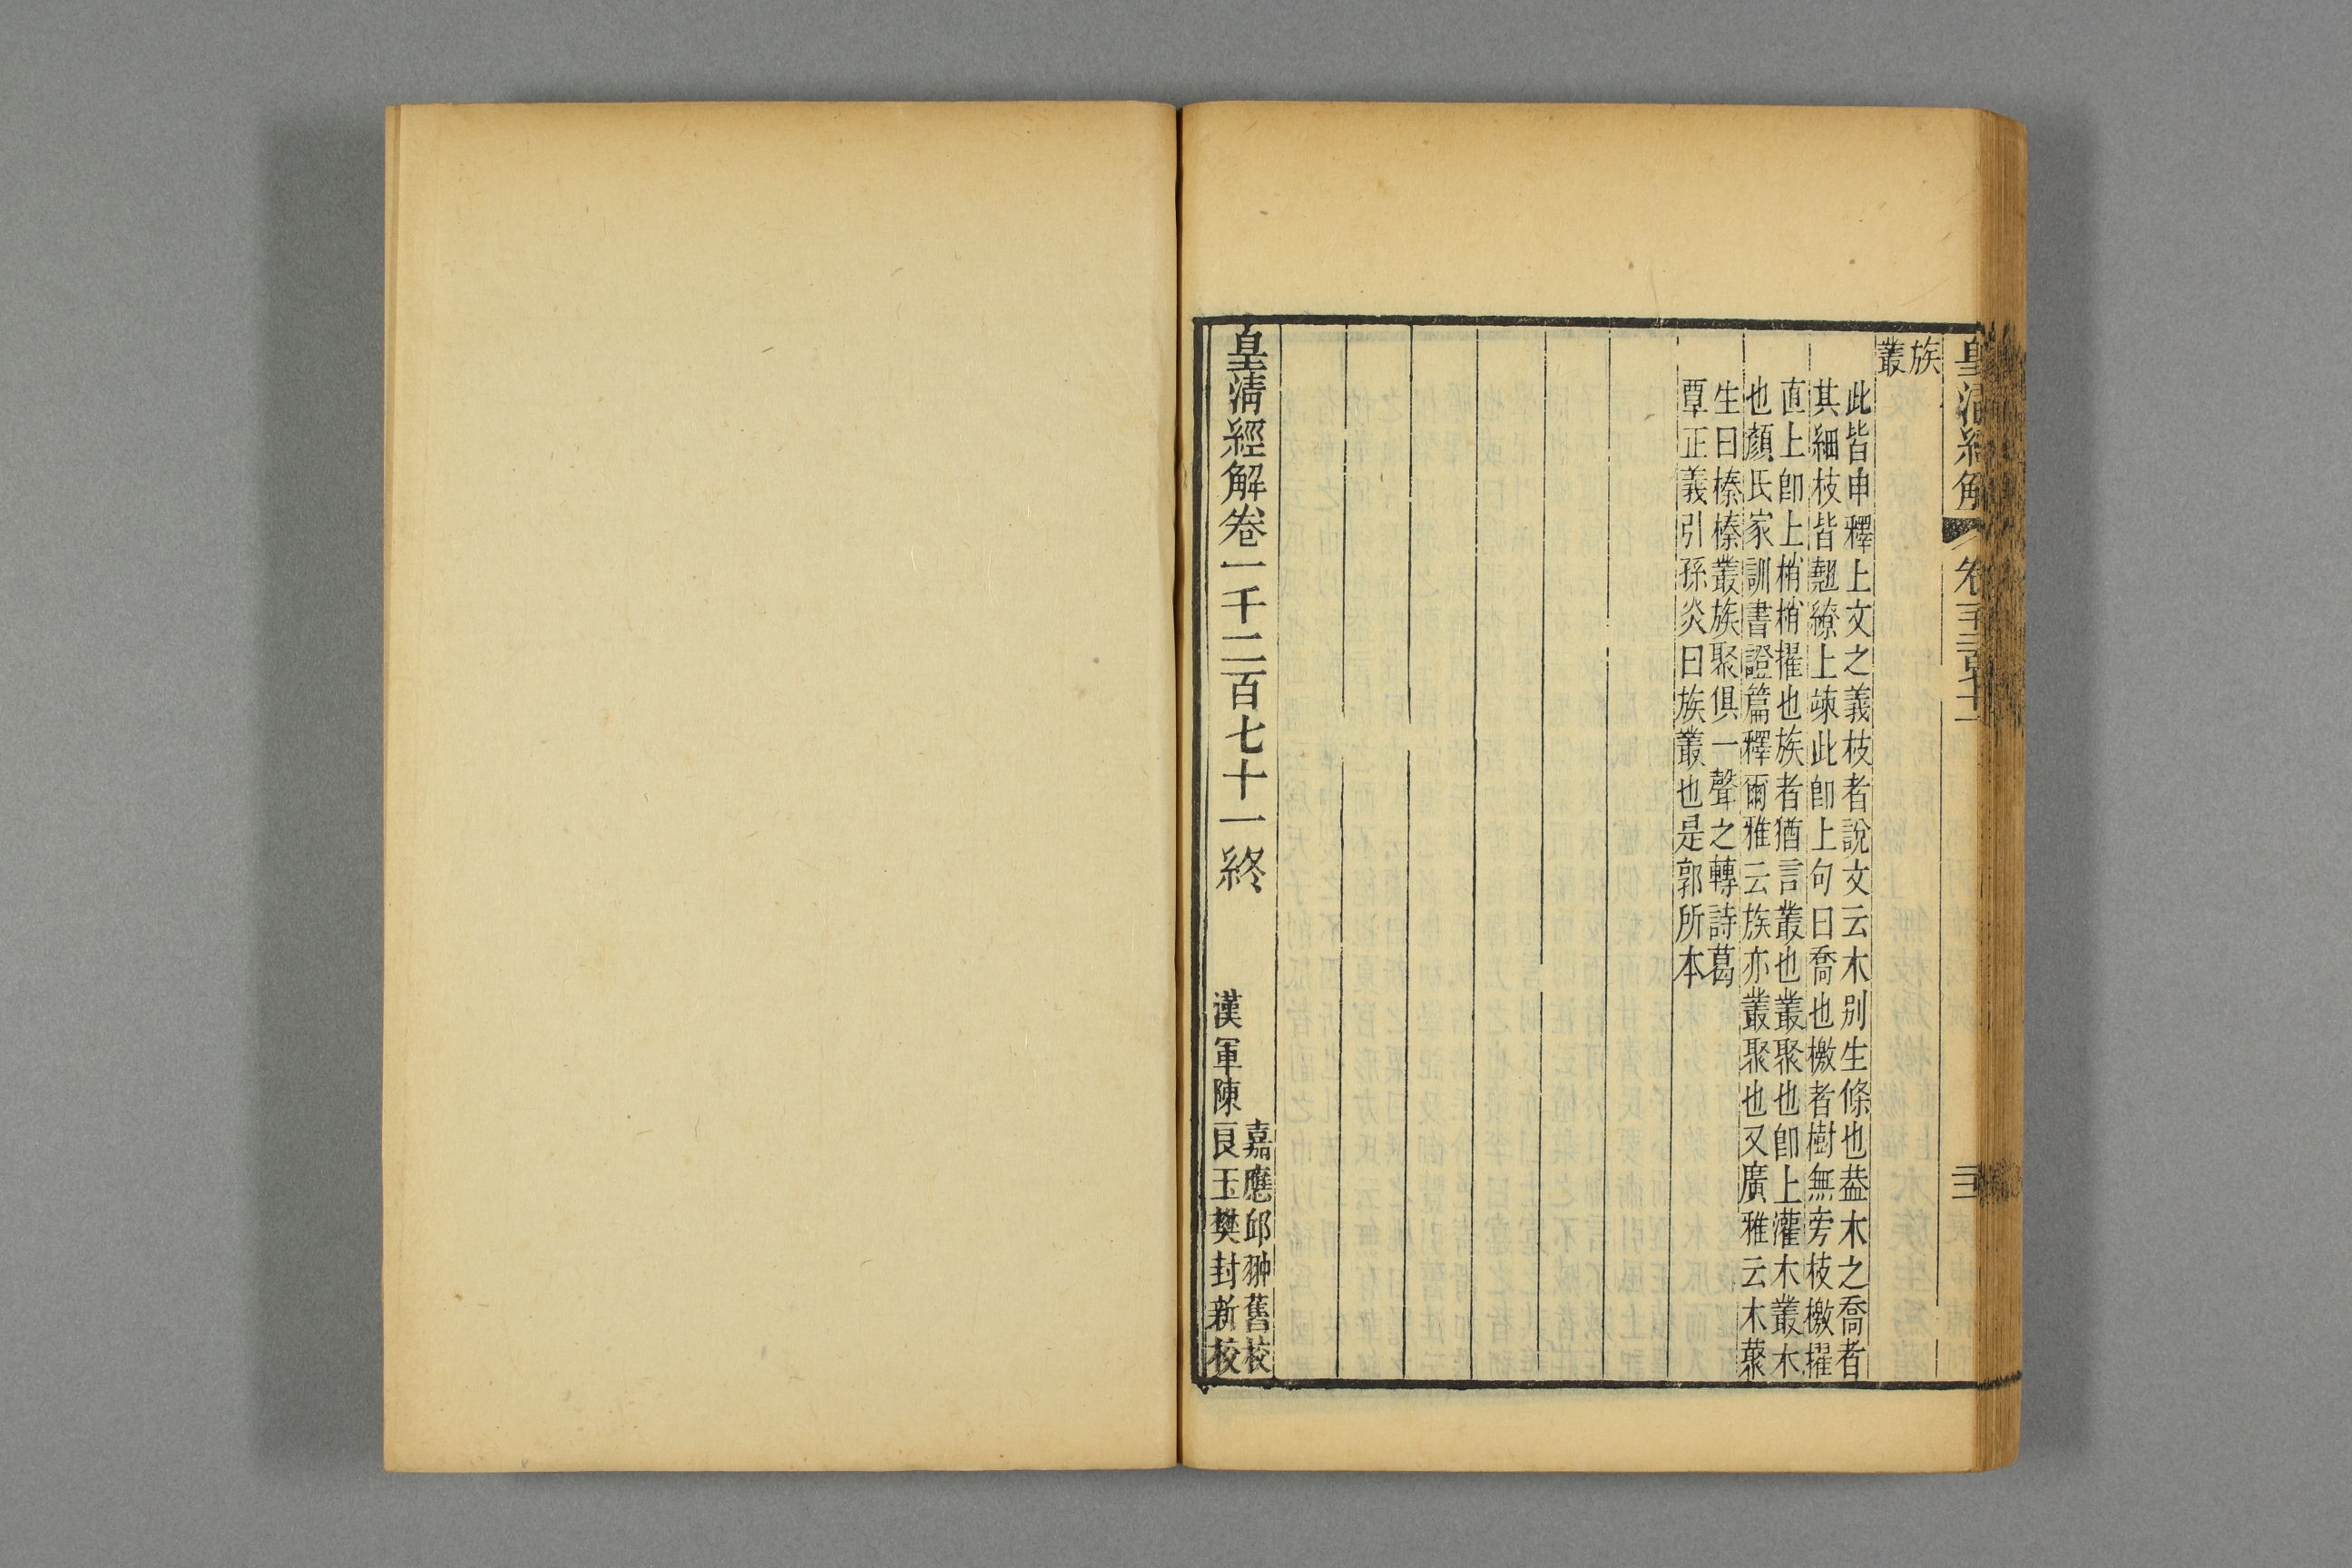 皇清經解 卷一千二百七十一 三
族
叢
此皆申釋上文之義枝者說文云木別生條也葢木之喬者
其細枝皆翹繚上竦此卽上句曰喬也檄者樹無旁枝檄擢
直上卽上梢梢擢也族者猶言叢也叢聚也卽上灌木叢木
也顏氏家訓書證篇釋爾雅云族亦叢聚也又廣雅云木藂
生曰榛榛叢族聚俱一聲之轉詩葛
覃正義引孫炎曰族叢也是郭所本
皇清經解卷一千二百七十一終
嘉應邱翀舊校
漢軍陳良玉樊封新校